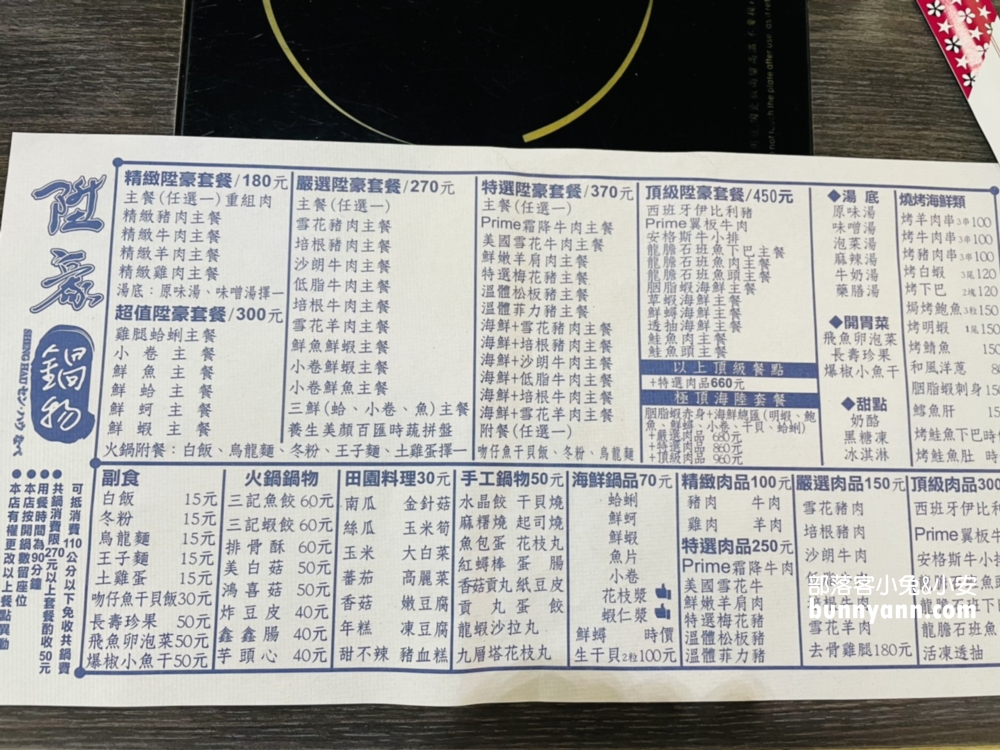 陞豪
鍋物
精緻陞豪套餐/180元
主餐(任選一)重組肉
精緻豬肉主餐
精緻牛肉主餐
精緻羊肉主餐
精緻雞肉主餐
湯底：原味湯、味噌湯擇一
超值陞豪套餐/300元
雞腿蛤蜊主餐
小卷主餐
鮮魚主餐
鮮蛤主餐
鮮蚵主餐
鮮蝦主餐
火鍋附餐：白飯、烏龍麵、冬粉、王子麵、土雞蛋擇一
嚴選陞豪套餐/270元
主餐(任選一)
雪花豬肉主餐
培根豬肉主餐
沙朗牛肉主餐
低脂牛肉主餐
培根牛肉主餐
雪花羊肉主餐
鮮魚鮮蝦主餐
小卷鮮蝦主餐
小卷鮮魚主餐
三鮮(蛤、小卷、魚)主餐
養生美顏百匯時蔬拼盤
特選陞豪套餐/370元
主餐(任選一)
Prime霜降牛肉主餐
美國雪花牛肉主餐
鮮嫩羊肩肉主餐
特選梅花豬主餐
溫體松板豬主餐
溫體菲力豬主餐
海鮮+雪花豬肉主餐
海鮮+培根豬肉主餐
海鮮+沙朗牛肉主餐
海鮮+低脂牛肉主餐
海鮮+培根牛肉主餐
海鮮+雪花羊肉主餐
附餐(任選一)
吻仔魚干貝飯、冬粉、烏龍麵
頂級陞豪套餐/450元
西班牙伊比利豬
Prime翼板牛肉
安格斯牛小排
龍膽石斑魚下巴主餐
龍膽石斑魚肉主餐
龍膽石斑魚頭主餐
胭脂蝦海鮮主餐
草蝦海鮮主餐
鮮蟳海鮮主餐
透抽海鮮主餐
鮭魚肉主餐
鮭魚頭主餐
以上頂級餐點
+特選肉品660元
極頂海陸套餐
胭脂蝦赤身+海鮮總匯(明蝦、鮑
魚、鮮蟳、小卷、干貝、蛤蜊)
+嚴選肉品 830元
+特選肉品 860元
+頂級肉品 960元
◆湯底
原味湯
味噌湯
泡菜湯
麻辣湯
牛奶湯
藥膳湯
◆開胃菜
飛魚卵泡菜
長壽珍果
爆椒小魚干
◆甜點
奶酪
黑糖凍
冰淇淋
燒烤海鮮類
烤羊肉串3串100
烤牛肉串3串100
烤豬肉串3串100
烤白蝦 3尾120
烤下巴 2塊120
焗烤鮑魚3粒150
烤明蝦 1尾150
烤鯖魚 150
和風洋蔥 80
胭脂蝦刺身15
鱈魚肝 15
烤鮭魚下巴時
烤鮭魚肚 時
副食
白飯 15元
冬粉 15元
烏龍麵 15元
王子麵 15元
土雞蛋 15元
吻仔魚干貝飯30元
長壽珍果 50元
飛魚卵泡菜50元
爆椒小魚干50元
火鍋鍋物
三記魚餃 60元
三記蝦餃 60元
排骨酥 60元
美白菇 50元
鴻喜菇 50元
炸豆皮 40元
鑫鑫腸 40元
芋頭心 40元
田園料理30元
南瓜 金針菇
絲瓜 玉米筍
玉米 大白菜
蕃茄 高麗菜
香菇 嫩豆腐
年糕 凍豆腐
甜不辣 豬血糕
手工鍋物50元
水晶餃 干貝燒
麻糬燒 起司燒
魚包蛋 花枝丸
紅蟳棒 蛋腸
香菇貢丸 紙豆皮
貢丸 蛋餃
龍蝦沙拉丸
九層塔花枝丸
海鮮鍋品70元
蛤蜊
鮮蚵
鮮蝦
魚片
小卷
花枝漿
蝦仁漿
鮮蟳 時價
生干貝2粒100元
精緻肉品100元
豬肉 牛肉
雞肉 羊肉
特選肉品250元
Prime霜降牛肉
美國雪花牛
鮮嫩羊肩肉
特選梅花豬
溫體松板豬
溫體菲力豬
嚴選肉品150元
雪花豬肉
培根豬肉
沙朗牛肉
雪花羊肉
去骨雞腿180元
頂級肉品300
西班牙伊比利
Prime翼板牛
安格斯牛小
龍膽石斑魚
活凍透抽
可抵消費110公分以下免收共鍋費
●共鍋消費限270元以上套餐酌收50元
●用餐時間為90分鐘
●本店按開鍋數留座位
●本店有權更改以上餐點異動
部落客小兔&小安
bunnyann.com